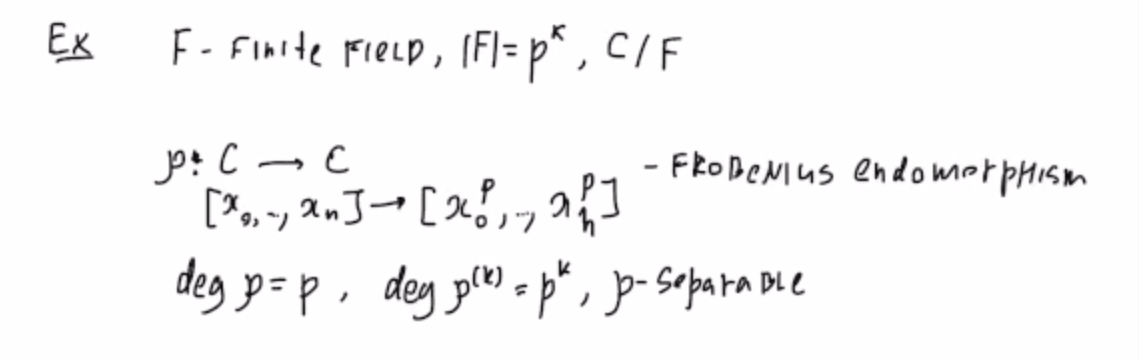 Ex F - Finite Field, |F| = p^k, C/F
p: C → C
[x_0, .., x_n] → [x_0^p, .., x_n^p] - Frobenius endomorphism
deg p = p, deg p^(k) = p^k, p - separable